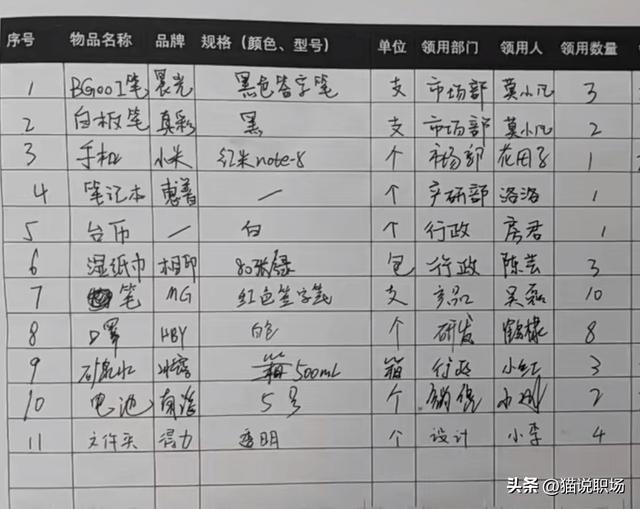 序号 物品名称 品牌 规格（颜色、型号） 单位 领用部门 领用人 领用数量
1 BG001笔 晨光 黑色签字笔 支 市场部 莫小凡 3
2 白板笔 真彩 黑 支 市场部 莫小凡 2
3 手机 小米 红米note-8 个 市场部 花田子 1
4 笔记本 惠普 — 个 产研部 洛洛 1
5 台币 — 白 个 行政 房君 1
6 湿纸巾 相印 80张绿 包 行政 陈芸 3
7 笔 MG 红色签字笔 支 产品 吴磊 10
8 口罩 HBY 白色 个 研发 8
9 矿泉水 冰露 500mL 箱 行政 小红 3
10 电池 南孚 5号 个 销售 小刚 2
11 文件夹 得力 透明 个 设计 小李 4
头条 @猫说职场